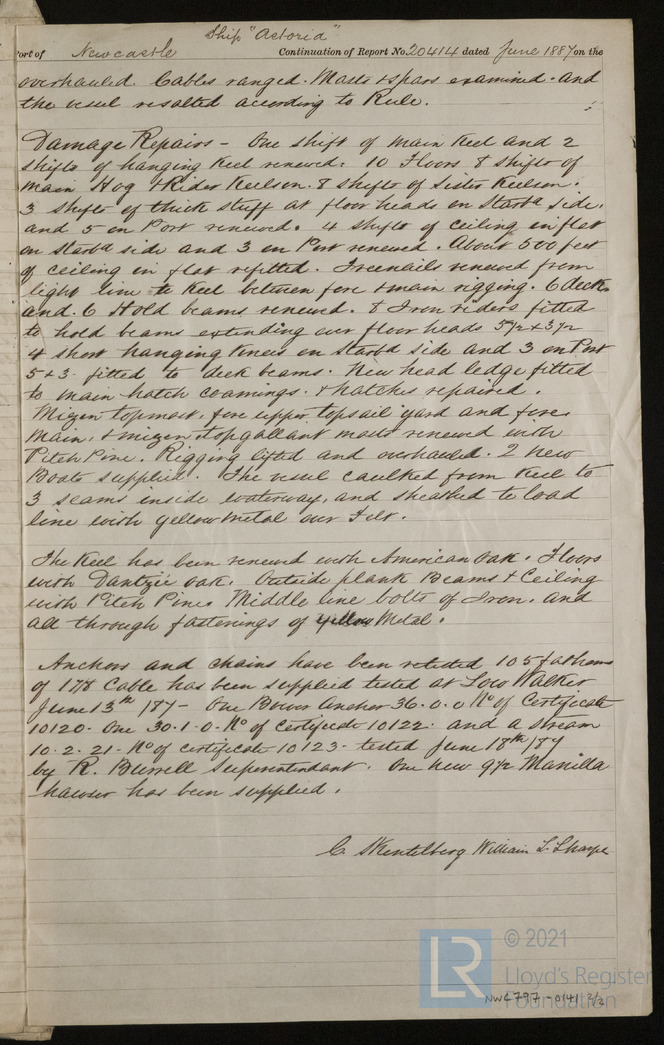 Ship "Astoria"
Port of Newcastle Continuation of Report No. 20414 dated June 1887 on the
overhauled. Cables ranged. Masts & spars examined. and
the vessel resalted according to Rule.
Damage Repairs - One shift of main keel and 2
shifts of hanging keel renewed. 10 Floors 8 shifts of
main Hog & Rider Keelson. 8 shifts of Sister Keelson.
3 shifts of thick stuff at floor heads on Starbd side.
and 5 on Port renewed. 4 shifts of ceiling in flat
on starbd side and 3 on Port renewed. About 500 feet
of ceiling in flat refitted. Treenails renewed from
light line to keel between fore & main rigging. 6 deck
and 6 Hold beams renewed. 8 Iron riders fitted
to hold beams extending over floor heads 5½ x 3½
4 short hanging knees on starbd side and 3 on Port
5 x 3 fitted to deck beams. New head ledge fitted
to main hatch coamings. & hatches repaired.
Mizen topmast, fore upper topsail yard and fore
main, & mizen topgallant masts renewed with
Pitch Pine. Rigging lifted and overhauled. 2 new
Boats supplied. The vessel caulked from keel to
3 seams inside waterway, and sheathed to load
line with yellow metal over Felt.
The Keel has been renewed with American Oak. Floors
with Dantzic oak. Outside plank Beams & Ceiling
with Pitch Pine. Middle line bolts of Iron. and
all through fastenings of yellow Metal.
Anchors and chains have been retested 105 fathoms
of 1 7/8 Cable has been supplied tested at Low Walker
June 13th /87 - One Bower Anchor 36.0.0 No of Certificate
10120. One 30.1.0. No of Certificate 10122. and a stream
10.2.21. No of certificate 10123. tested June 18th /87
by R. Burrell Superintendant. One new 9½ Manilla
hawser has been supplied.
C. William S. Sharpe
LR © 2021
Lloyd's Register
Foundation
NWC797-0141 2/2